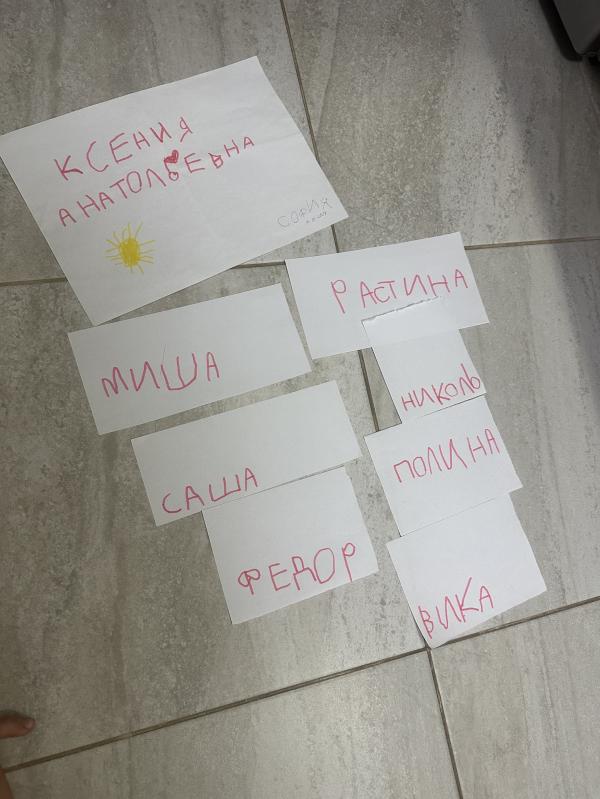 КСЕНИЯ
АНАТОЛЬЕВНА
СОФИЯ
РАСТИНА
МИША
НИКОЛЬ
САША
ПОЛИНА
ФЕДОР
ВИКА